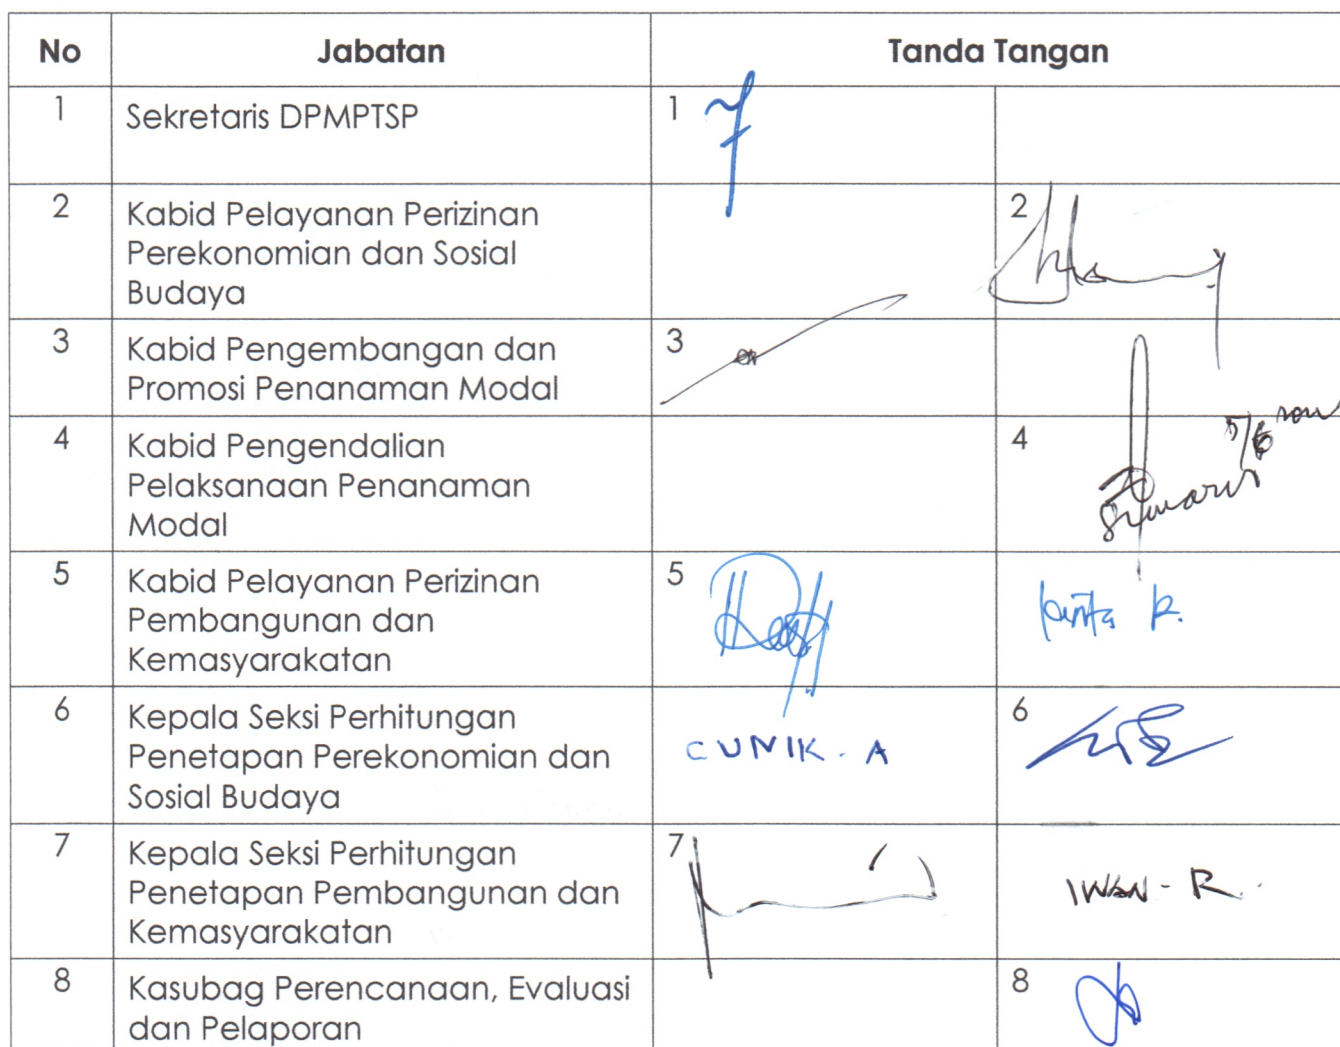 No Jabatan Tanda Tangan
1 Sekretaris DPMPTSP 1
2 Kabid Pelayanan Perizinan 2
Perekonomian dan Sosial
Budaya
3 Kabid Pengembangan dan 3
Promosi Penanaman Modal
4 Kabid Pengendalian 4
Pelaksanaan Penanaman
Modal
5 Kabid Pelayanan Perizinan 5
Pembangunan dan
Kemasyarakatan
6 Kepala Seksi Perhitungan 6
Penetapan Perekonomian dan CUNIK. A
Sosial Budaya
7 Kepala Seksi Perhitungan 7
Penetapan Pembangunan dan IWAN - R.
Kemasyarakatan
8 Kasubag Perencanaan, Evaluasi 8
dan Pelaporan